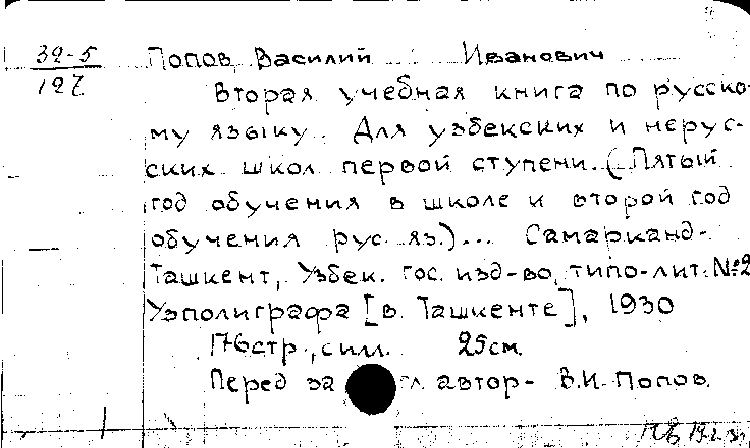 39-5 Попов, Василий Иванович
127 Вторая учебная книга по русско-
му языку. Для узбекских и нерус-
ских школ первой ступени. (Пятый
год обучения в школе и второй год
обучения рус. яз.)... Самарканд-
Ташкент, Узбек. гос. изд-во, типо-лит. №2
Узполиграфа [в. Ташкенте], 1930
176стр., с илл. 25см.
Перед за гл. автор- В.И. Попов.